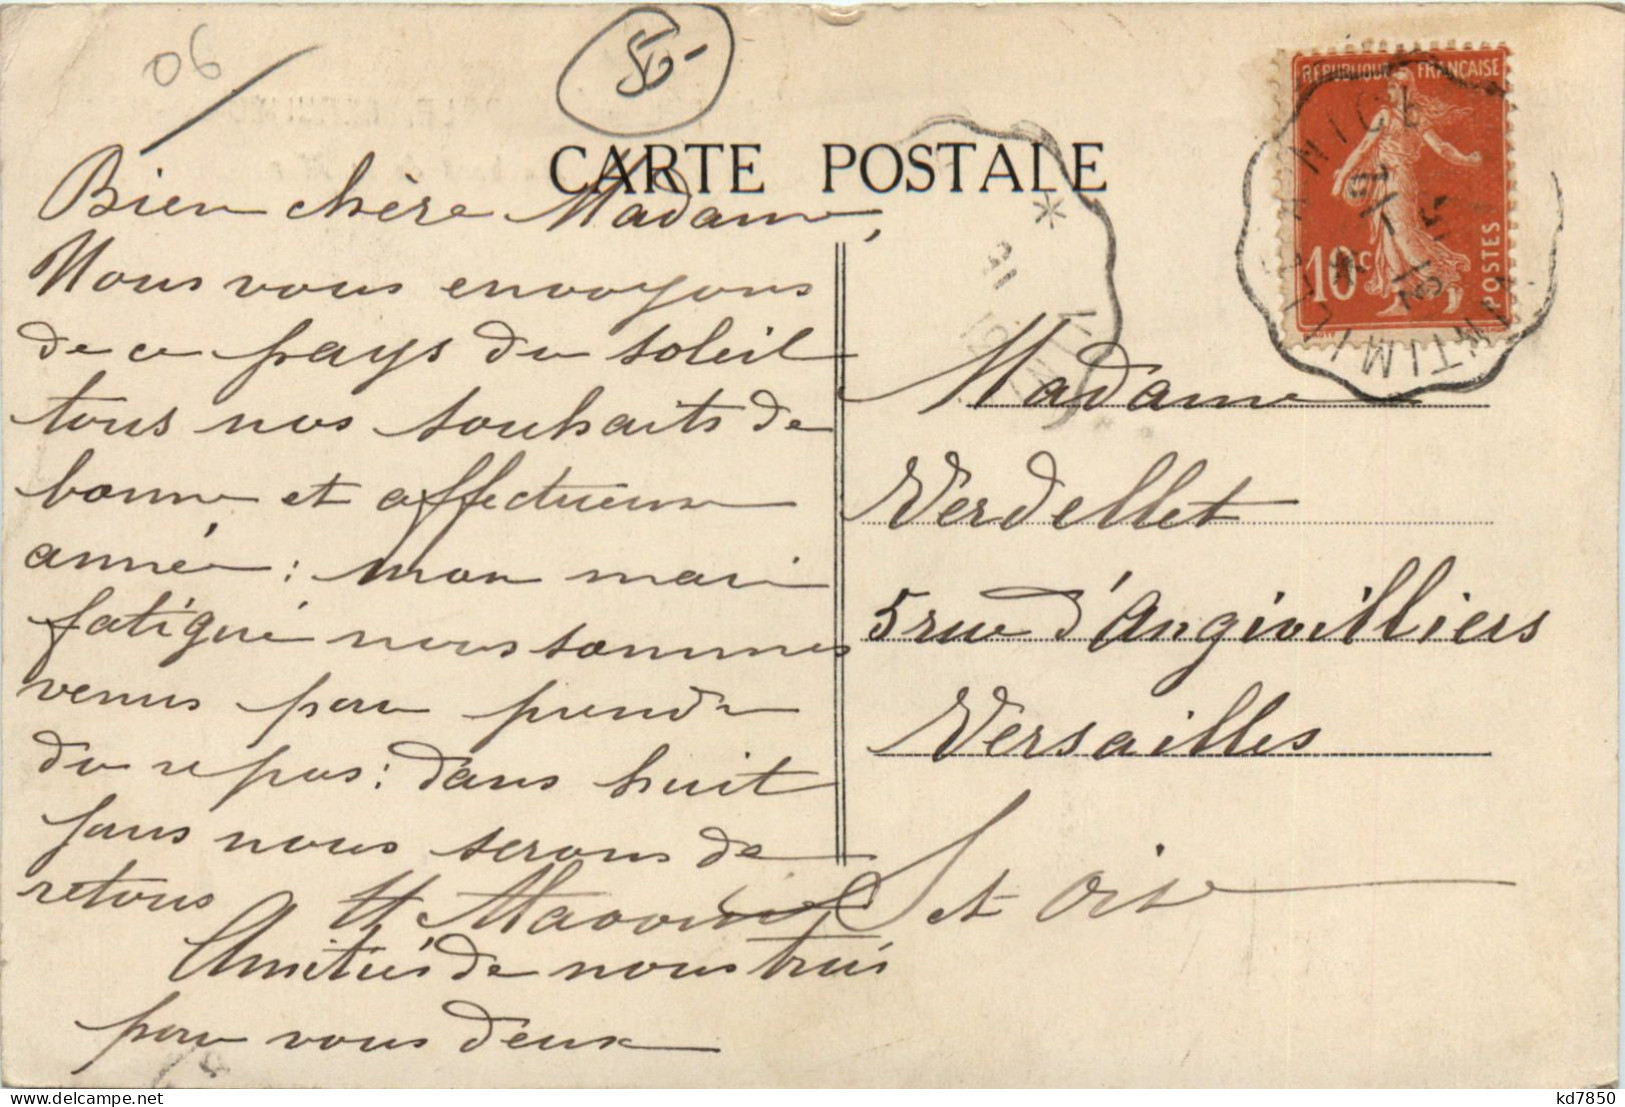 06
50-
CARTE POSTALE
REPUBLIQUE FRANÇAISE
10c
POSTES
VINTIMILLE A NICE
Bien chère Madame,
Nous vous envoyons
de ce pays du soleil
tous nos souhaits de
bonne et affectueuse
année : mon mari
fatigué nous sommes
venus pour prendre
du repos : dans huit
jours nous serons de
retour
Amitiés de nous trois
pour vous deux
Madame
Verdellet
5 rue d'Angivilliers
Versailles
S et Oise
kd7850